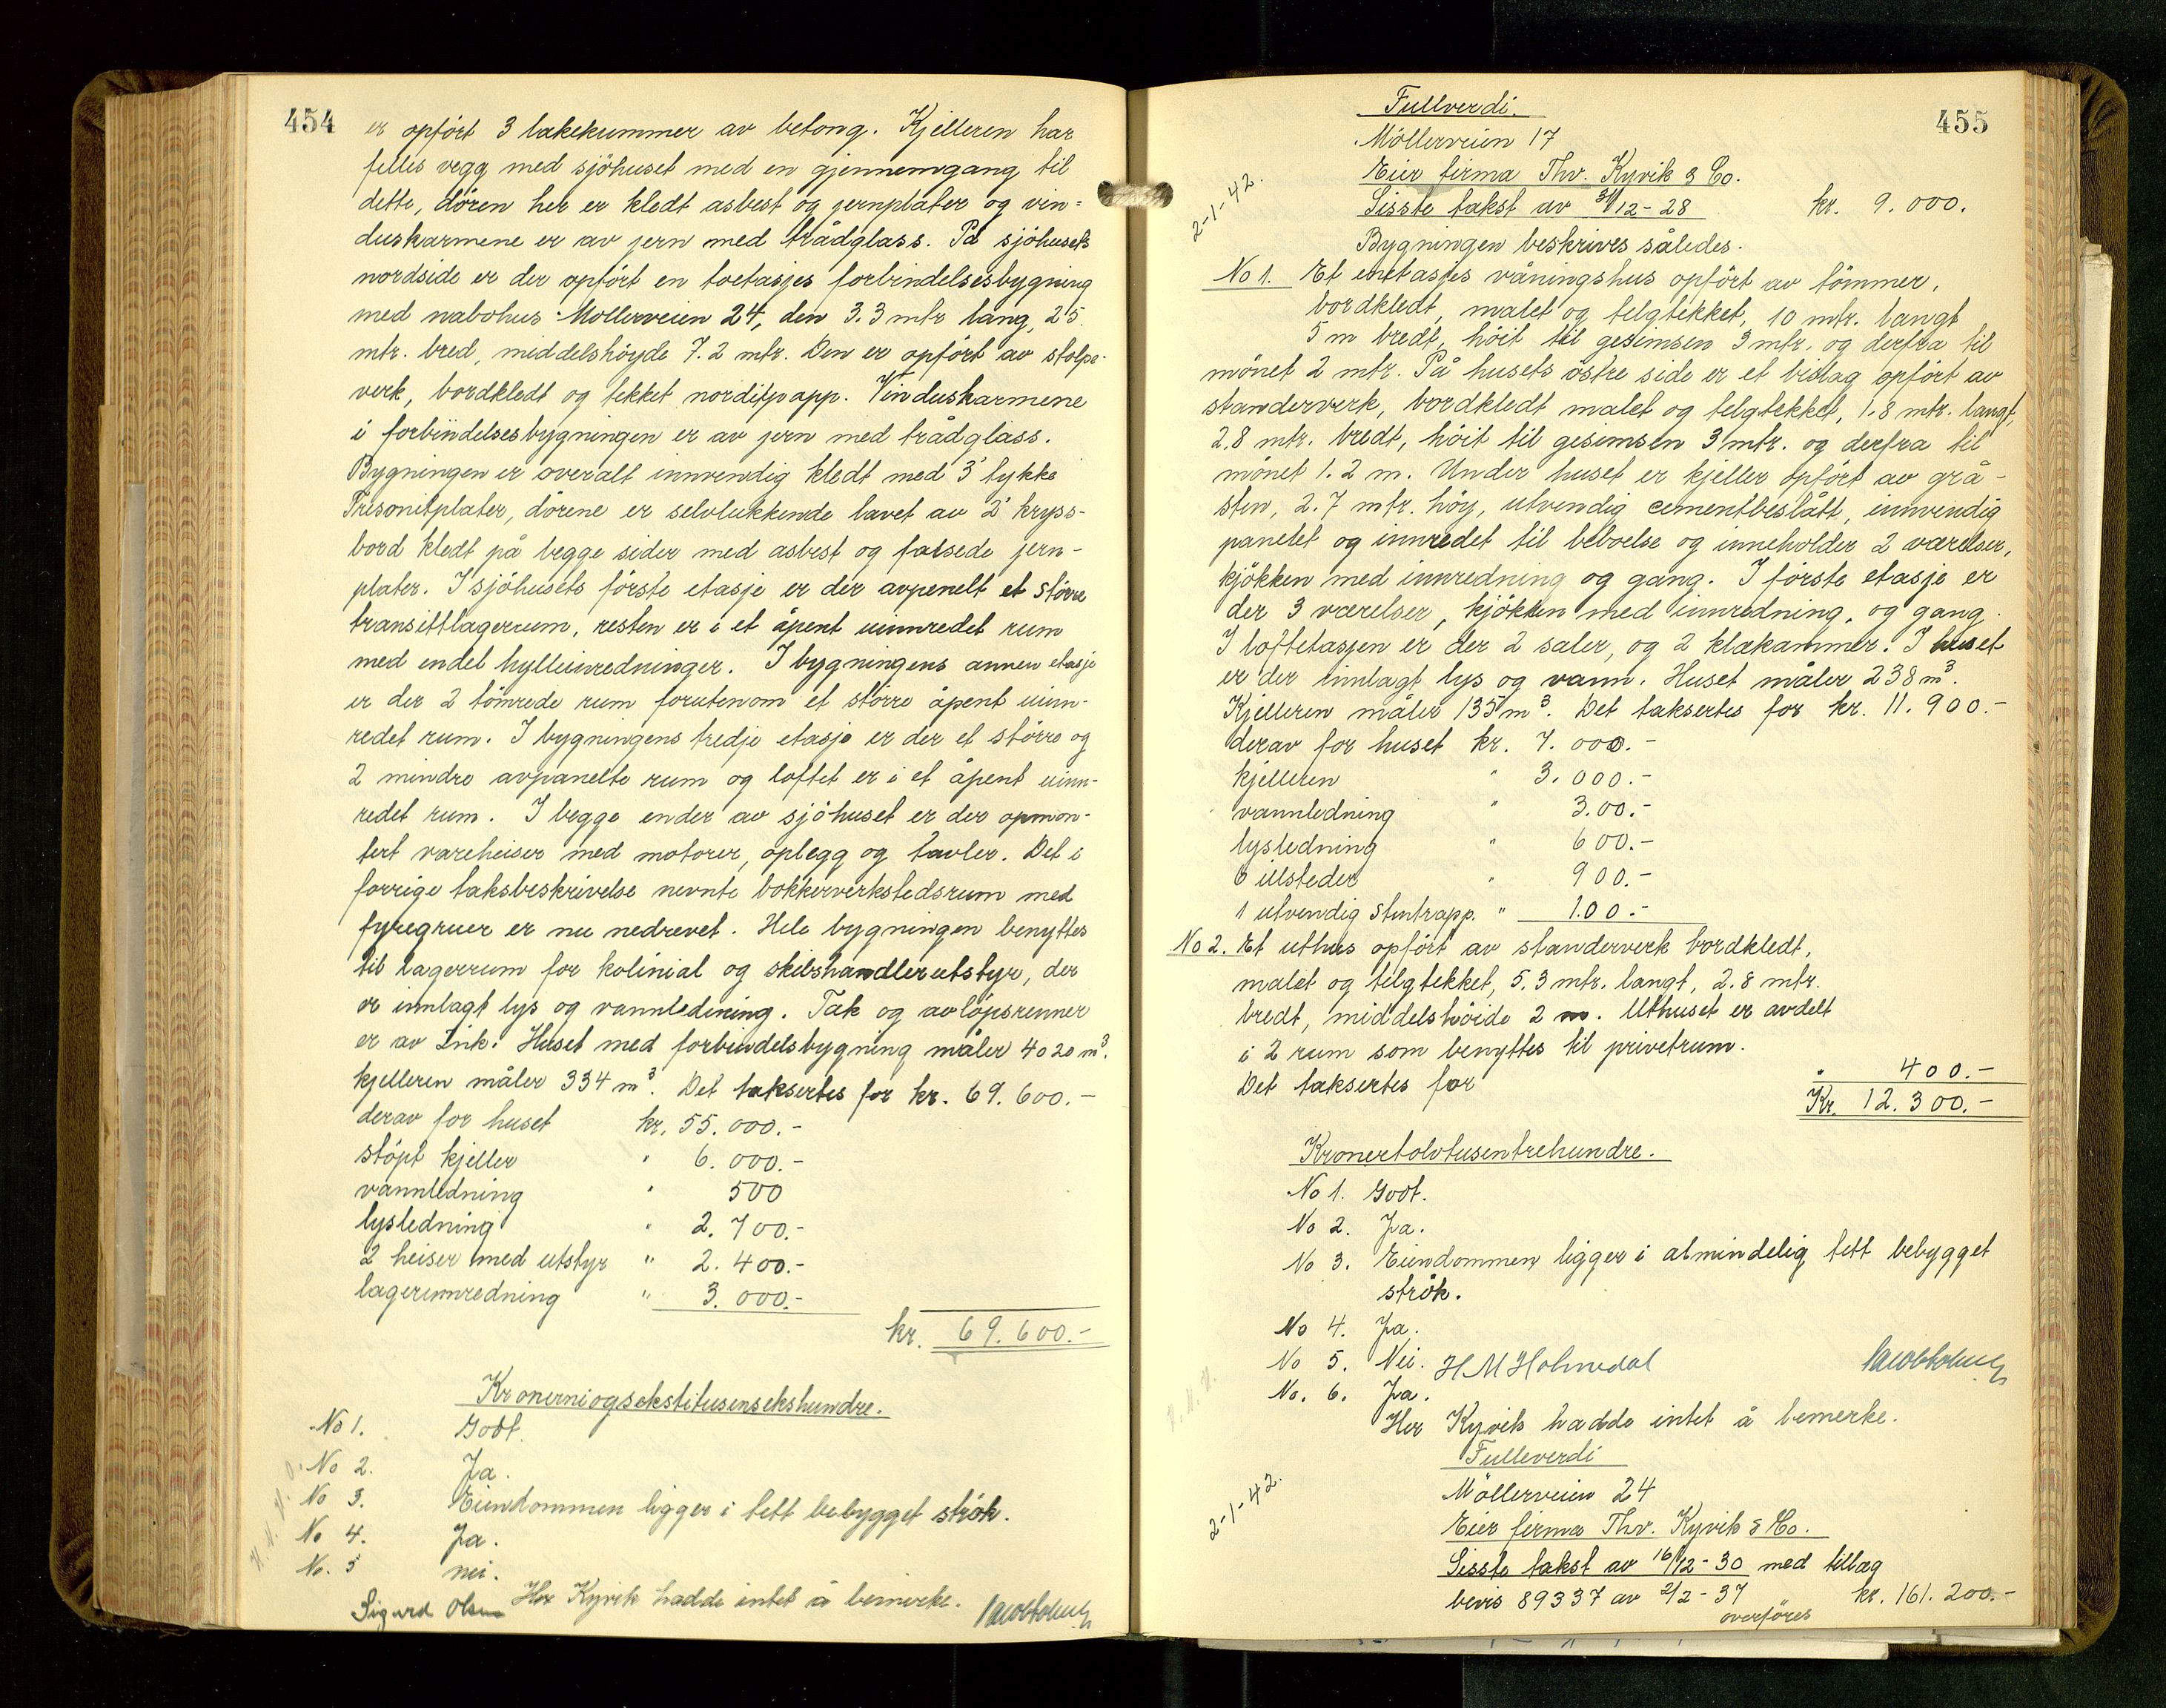 454
er opført 3 lakekummer av betong. Kjelleren har
felles vegg med sjöhuset med en gjennemgang til
dette, dören her er kledt asbest og jernplater og vin=
duskarmene er av jern med trådglass. På sjöhusets
nordside er der opfört en toetasjes forbindelsesbygning
med nabohus Möllerveien 24, den 3.3 mtr lang, 2.5
mtr. bred, middelshöyde 7.2 mtr. Den er opfört av stolpe-
verk, bordkledt og tekket norditpapp. Vinduskarmene
i forbindelsesbygningen er av jern med trådglass.
Bygningen er overalt innvendig kledt med 3" tykke
Tresonitplater, dörene er selvlukkende lavet av 2" kryss-
bord kledt på begge sider med asbest og falsede jern-
plater. I sjöhusets förste etasje er der avpenelt et större
transittlagerrum, resten er i et åpent uinnredet rum
med endel hylleinredninger. I bygningens annen etasje
er der 2 tömrede rum forutenom et större åpent uinn-
redet rum. I bygningens tredje etasje er der et större og
2 mindre avpanelte rum og loftet er i et åpent uinn-
redet rum. I begge ender av sjöhuset er der opmon-
tert vareheiser med motorer, oplegg og tavler. Det i
forrige taksbeskrivelse nevnte bökkerverkstedsrum med
fyregruer er nu nedrevet. Hele bygningen benyttes
til lagerrum for kolinial og skibshandlerutstyr, der
er innlagt lys og vannledning. Tak og avlöpsrenner
er av Zink. Huset med forbindelsbygning måler 4020 m³.
kjelleren måler 334 m³. Det taksertes for kr. 69.600.-
derav for huset kr. 55.000.-
stöpt kjeller " 6.000.-
vannledning " 500
lysledning " 2.700.-
2 heiser med utstyr " 2.400.-
lagerinnredning " 3.000.-
kr. 69.600.-
Kronerniogsekstitusenseekshundre.
No 1. Godt.
No 2. Ja.
No 3. Eiendommen ligger i tett bebygget strök.
No 4. Ja.
No. 5 nei.
Her Kyvik hadde intet å bemerke.
Sigurd Olsen
455
Fullverdi.
Möllerveien 17
Eier firma Thv. Kyvik & Co.
2-1-42.
Sisste takst av 31/12-28 kr. 9.000.
Bygningen beskrives således.
No 1. Et enetasjes våningshus opfört av tömmer,
bordkledt, malet og telgtekket, 10 mtr. langt
5 m bredt, höit til gesimsen 3 mtr. og derfra til
mönet 2 mtr. På husets östre side er et bislag opfört av
standerverk, bordkledt malet og telgtekket, 1.8 mtr. langt,
2.8 mtr. bredt, höit til gesimsen 3 mtr. og derfra til
mönet 1.2 m. Under huset er kjeller opfört av grå-
sten, 2.7 mtr. höy, utvendig cementbeslått, innvendig
panelet og innredet til beboelse og inneholder 2 værelser,
kjökken med innredning og gang. I förste etasje er
der 3 værelser, kjökken med innredning, og gang.
I loftetasjen er der 2 saler, og 2 klækammer. I huset
er der innlagt lys og vann. Huset måler 238 m³.
Kjelleren måler 135 m³. Det taksertes for kr. 11.900.-
derav for huset kr. 7.000.-
kjelleren " 3.000.-
vannledning " 3.00.-
lysledning " 600.-
6 illsteder " 900.-
1 utvendig stentrapp. " 1.00.-
No 2. Et uthus opfört av standerverk bordkledt,
malet og telgtekket, 5.3 mtr. langt, 2.8 mtr.
bredt, middelshöide 2 m. Uthuset er avdelt
i 2 rum som benyttes til privetrum.
Det taksertes for " 400.-
Kr. 12.300.-
Kronertolvtusentrehundre.
No 1. Godt.
No 2. Ja.
No 3. Eiendommen ligger i almindelig tett bebygget
strök.
No 4. Ja.
No 5. Nei. H M Holmedal
No. 6. Ja.
Her Kyvik hadde intet å bemerke.
Fulleverdi
2-1-42.
Möllerveien 24
Eier firma Thv. Kyvik & Co.
Sisste takst av 16/12-30 med tillæg
bevis 89337 av 2/2-37 kr. 161.200.-
overföres